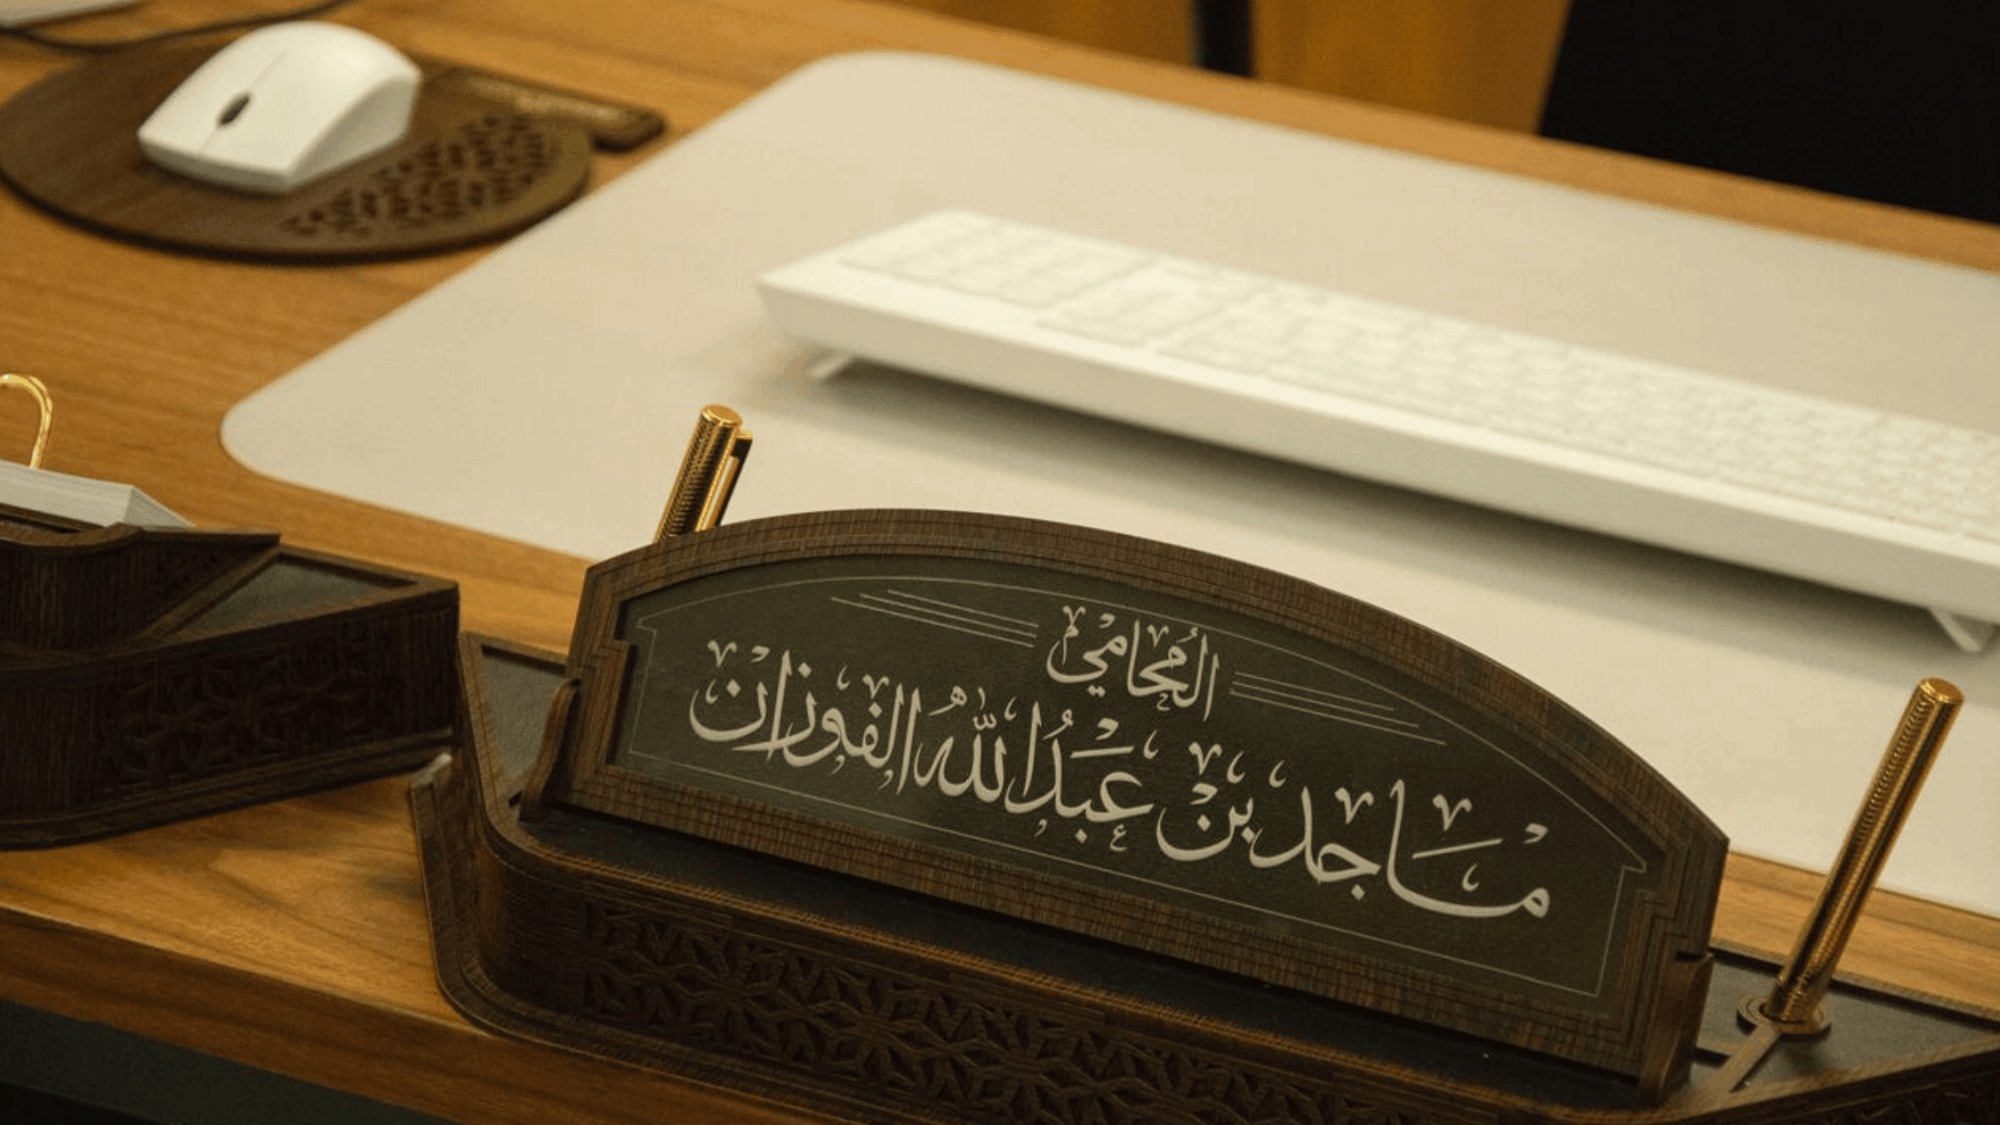 المحامي
ماجد بن عبدالله الفوزان